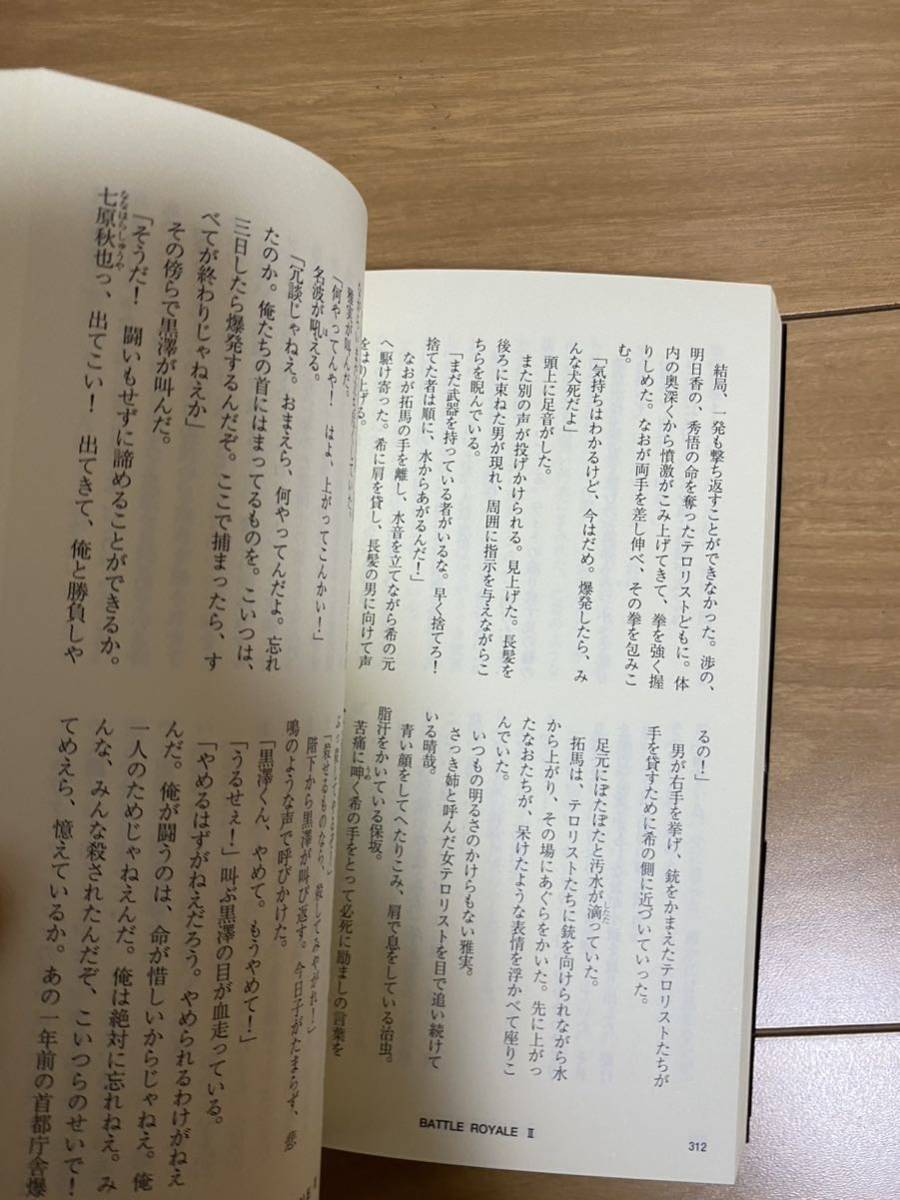 結局、一発も撃ち返すことができなかった。渉の、
明日香の、秀悟の命を奪ったテロリストどもに。体
内の奥深くから憤激がこみ上げてきて、拳を強く握
りしめた。なおが両手を差し伸べ、その拳を包みこ
む。
「気持ちはわかるけど、今はだめ。爆発したら、み
んな犬死だよ」
頭上に足音がした。
また別の声が投げかけられる。見上げた。長髪を
後ろに束ねた男が現れ、周囲に指示を与えながらこ
ちらを睨んでいる。
「まだ武器を持っている者がいるな。早く捨てろ！
捨てた者は順に、水からあがるんだ！」
なおが拓馬の手を離し、水音を立てながら希の元
へ駆け寄った。希に肩を貸し、長髪の男に向けて声
をはり上げる。
るの！」
男が右手を挙げ、銃をかまえたテロリストたちが
手を貸すために希の側に近づいていった。
足元にぽたぽたと汚水が滴っていた。
したた
拓馬は、テロリストたちに銃を向けられながら水
から上がり、その場にあぐらをかいた。先に上がっ
たなおたちが、呆けたような表情を浮かべて座りこ
んでいた。
いつもの明るさのかけらもない雅実。
さっき姉と呼んだ女テロリストを目で追い続けて
いる晴哉。
青い顔をしてへたりこみ、肩で息をしている治虫。
脂汗をかいている保坂。
苦痛に呻く希の手をとって必死に励ましの言葉を
うめ
BATTLE ROYALE Ⅱ
312
雅実が叫んだ。
「何やってんや！　はよ、上がってこんかい！」
名波が吼える。
ほ
「冗談じゃねえ。おまえら、何やってんだよ。忘れ
たのか。俺たちの首にはまってるものを。こいつは、
三日したら爆発するんだぞ。ここで捕まったら、す
べてが終わりじゃねえか」
その傍らで黒澤が叫んだ。
「そうだ！　闘いもせずに諦めることができるか。
七原秋也っ、出てこい！　出てきて、俺と勝負しや
ななはらしゅうや
「殺せるものなら、殺してみやがれ！」
階下から黒澤が叫び返す。今日子がたまらず、悲
鳴のような声で呼びかけた。
「黒澤くん、やめて。もうやめて！」
「うるせぇ！」叫ぶ黒澤の目が血走っている。
「やめるはずがねえだろう。やめられるわけがねえ
んだ。俺が闘うのは、命が惜しいからじゃねえ。俺
一人のためじゃねえんだ。俺は絶対に忘れねえ。み
んな、みんな殺されたんだぞ、こいつらのせいで！
てめえら、憶えているか。あの一年前の首都庁舎爆